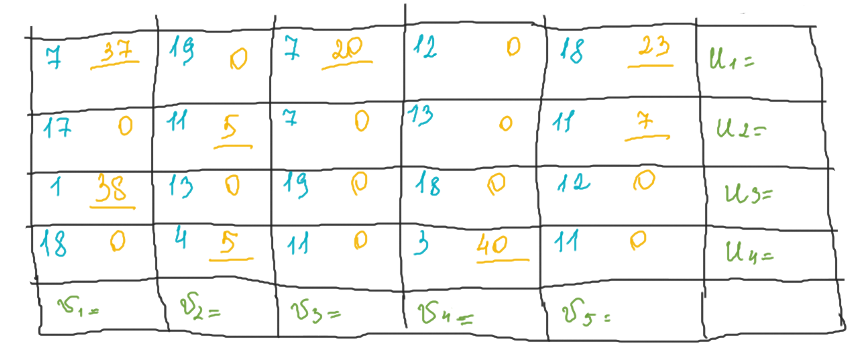 7 37 19 0 7 20 12 0 18 23 U1=
17 0 11 5 7 0 13 0 11 7 U2=
1 38 13 0 19 0 18 0 12 0 U3=
18 0 4 5 11 0 3 40 11 0 U4=
V1= V2= V3= V4= V5=